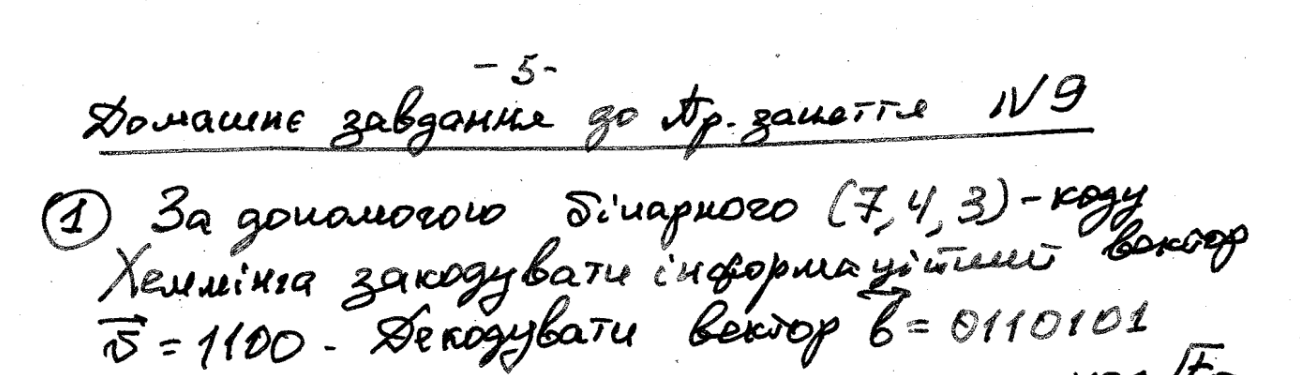 - 5 -
Домашнє завдання до Пр. заняття N 9
① За допомогою бінарного (7,4,3)-коду
Хеммінга закодувати інформаційний вектор
v⃗ = 1100. Декодувати вектор b⃗ = 0110101